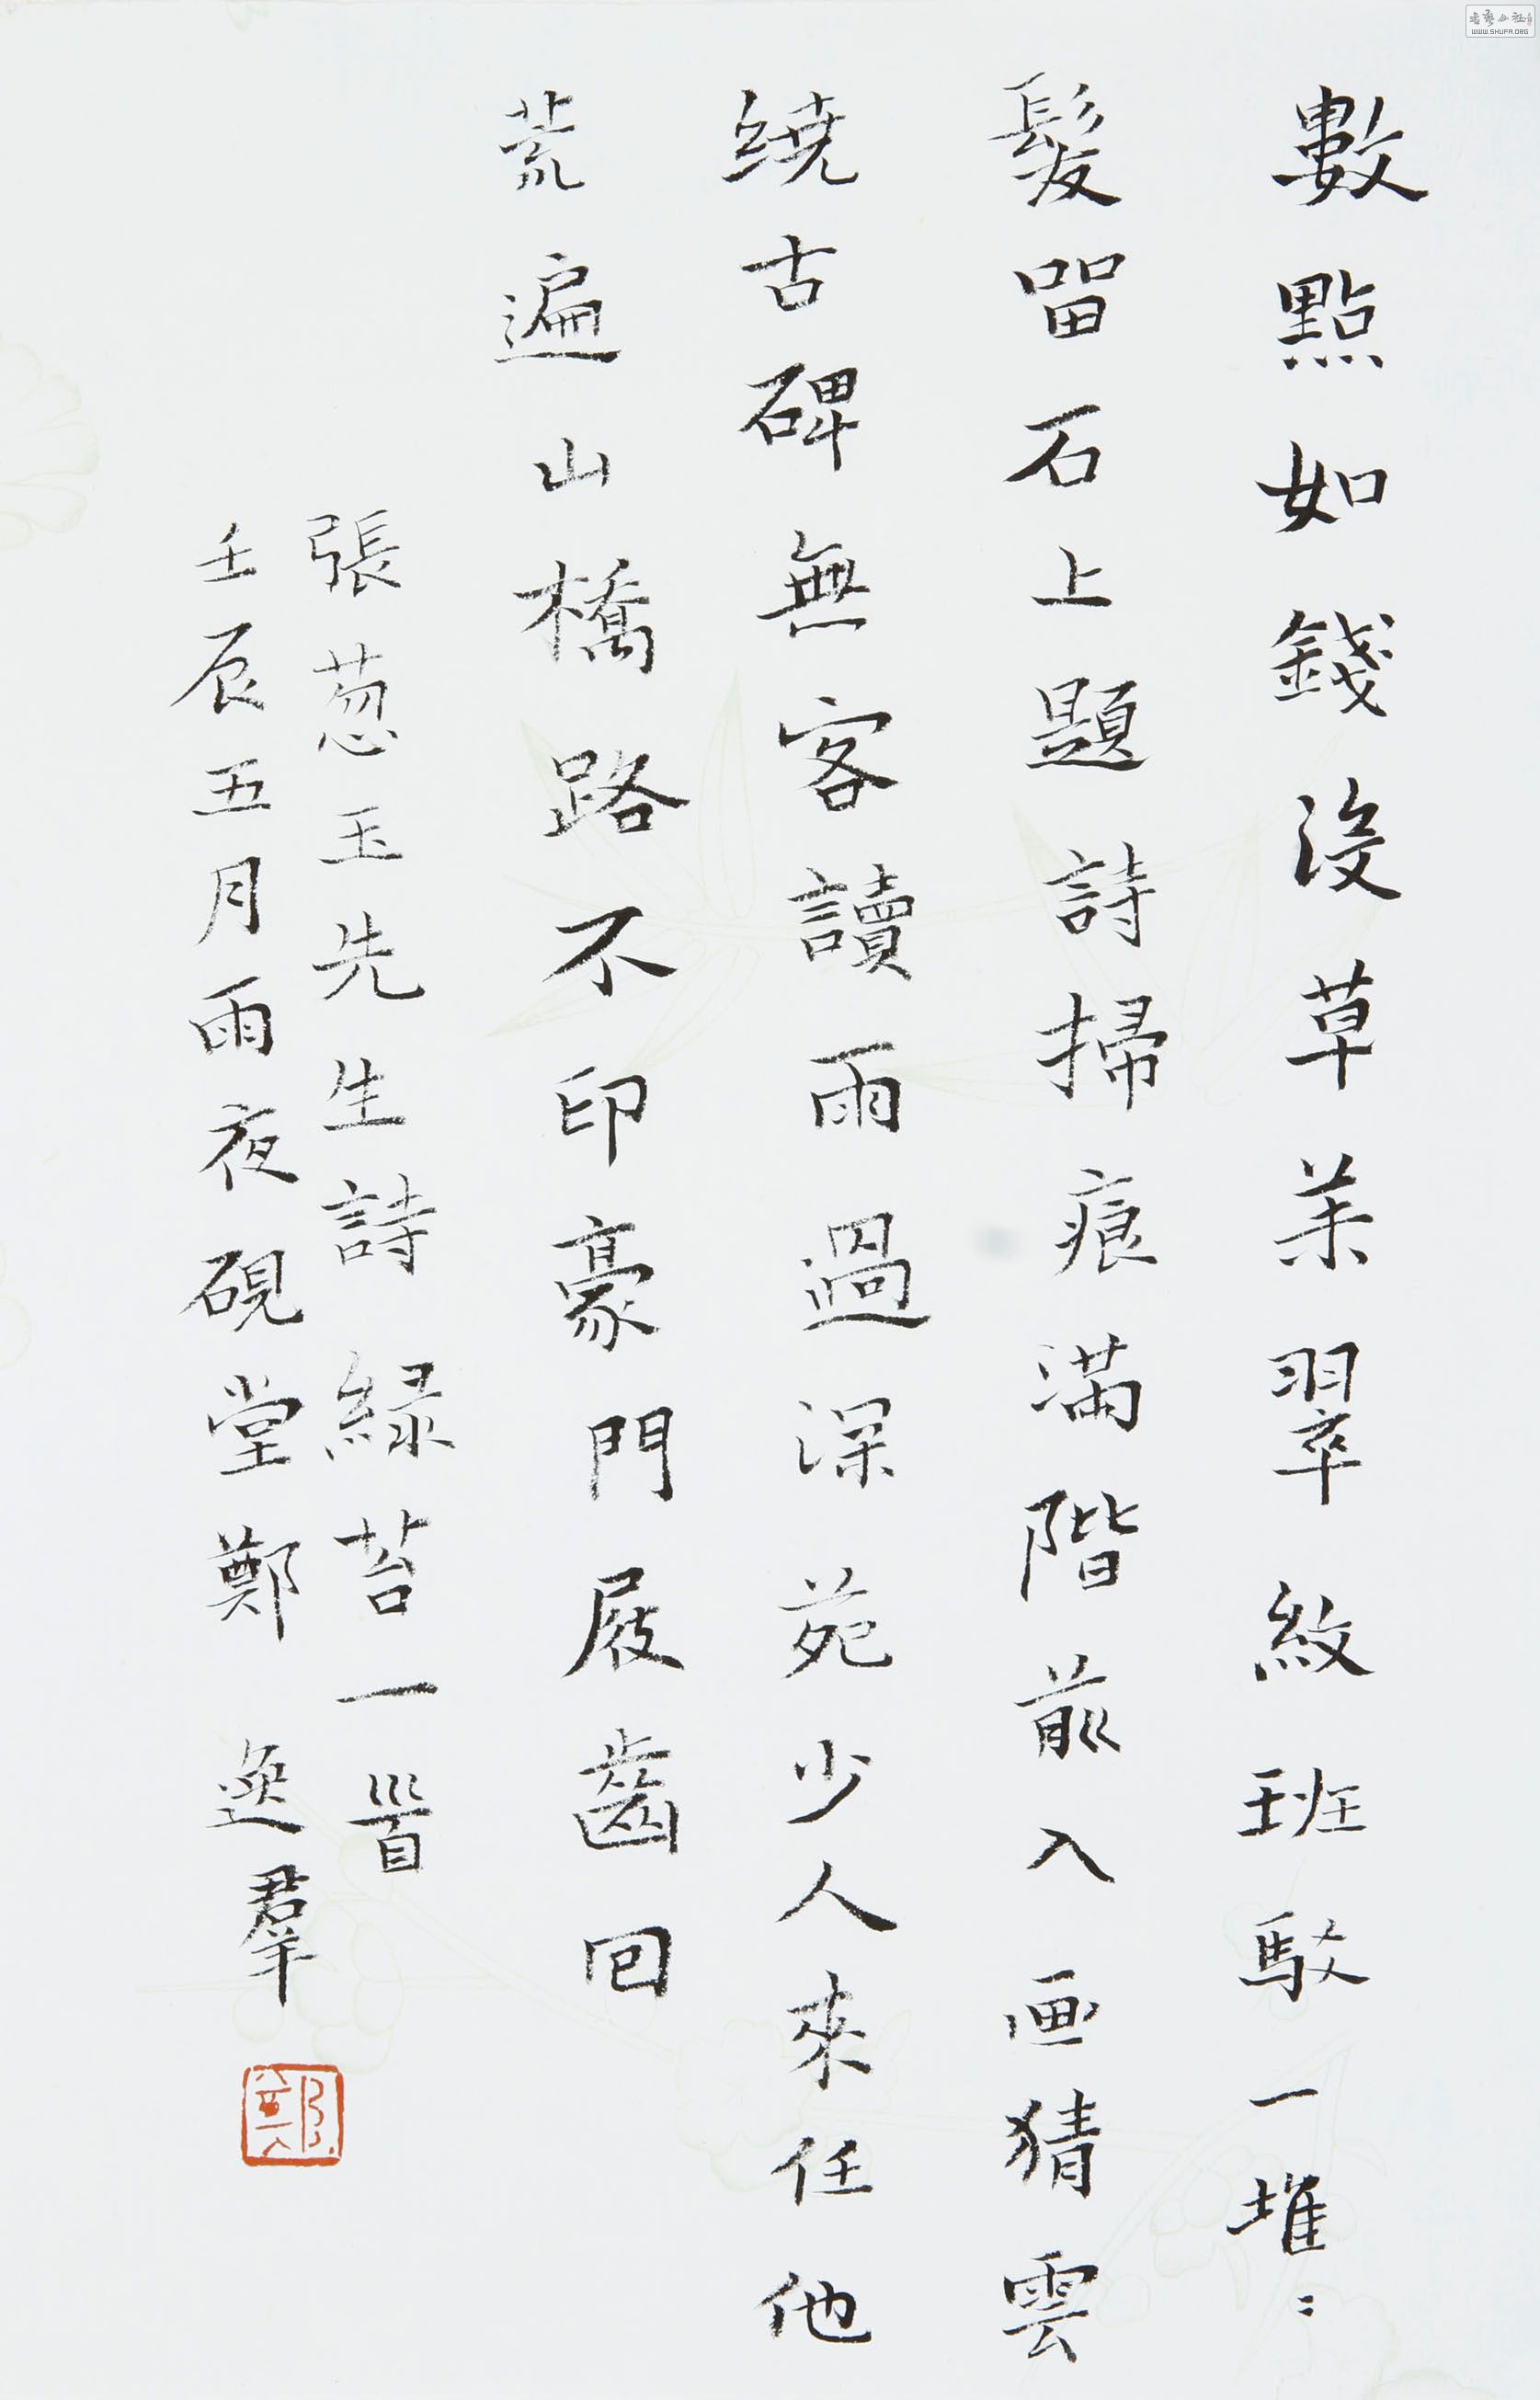 數點如錢沒草萊翠紋班駁一堆〻
髮留石上題詩掃痕滿階前入画猜雲
繞古碑無客讀雨過深苑少人來任他
荒遍山橋路不印豪門屐齒回
張蔥玉先生詩緑苔一首
壬辰五月雨夜硯堂鄭逸羣
鄭
WWW.SHUFA.ORG